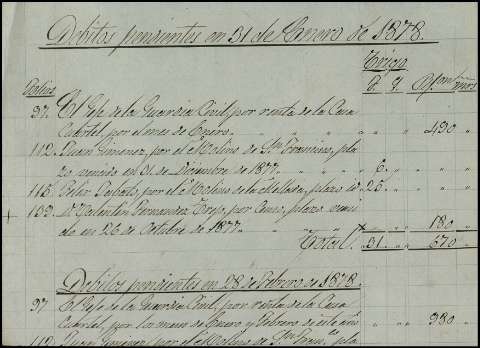 Débitos pendientes en 31 de Enero de 1878.
Trigo
Folios F. Ms.
97. El Jefe de la Guardia Civil, por renta de la Casa
Cuartel, por el mes de Enero. " " " " 490 "
112. Juan Gimenez, por el Molino de Sn. Francisco, pla
zo vencido en 31 de Diciembre de 1877. " " 6 " " "
115. por el Molino de la plazo id. 25 " " "
103. Dn. Valentin Fernandez Trejo, por Censo, plazo venci
do en 26 de Octubre de 1877. " " " " 180 "
Total. 31 " 670 "
Débitos pendientes en 28 de Febrero de 1878.
97 El Jefe de la Guardia Civil, por renta de la Casa
Cuartel, por los meses de Enero y Febrero de este año " " 980 "
112 Juan Gimenez, por el Molino de Sn. Fran, pla